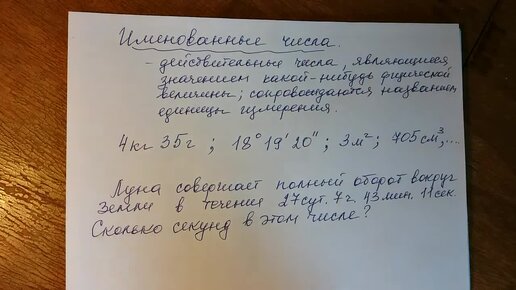 Именованные числа.
- действительные числа, являющиеся
значением какой-нибудь физической
величины; сопровождаются названием
единицы измерения.
4кг 35г ; 18° 19' 20" ; 3м² ; 705 см³,...
Луна совершает полный оборот вокруг
Земли в течение 27сут. 7г. 43мин. 11сек.
Сколько секунд в этом числе?